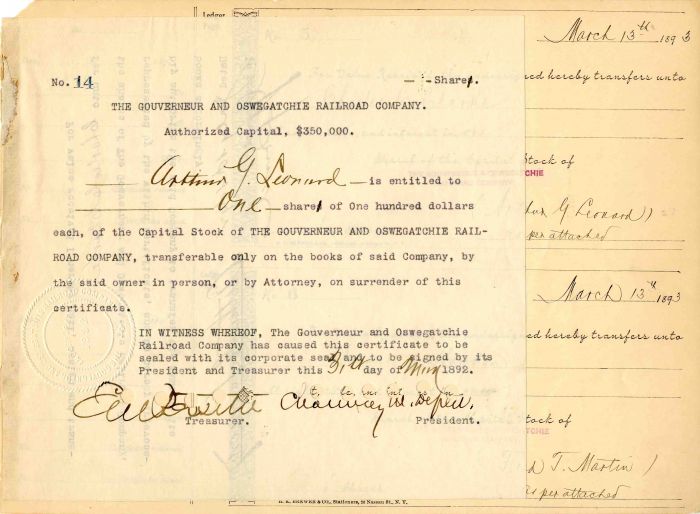 Ledger
No. 14
1 Share
THE GOUVERNEUR AND OSWEGATCHIE RAILROAD COMPANY.
Authorized Capital, $350,000.
Arthur G. Leonard is entitled to
One share of One hundred dollars
each, of the Capital Stock of THE GOUVERNEUR AND OSWEGATCHIE RAIL-
ROAD COMPANY, transferable only on the books of said Company, by
the said owner in person, or by Attorney, on surrender of this
certificate.
IN WITNESS WHEREOF, The Gouverneur and Oswegatchie
Railroad Company has caused this certificate to be
sealed with its corporate seal and to be signed by its
President and Treasurer this 31st day of 1892.
Chauncey M. Depew.
Treasurer. President.
Stationers, 31 Nassau St., N. Y.
March 13th 1893
ed hereby transfers unto
Stock of
CHIE
G Leonard)
per attached
March 13th 1893
ed hereby transfers unto
tock of
TCHIE
d T. Martin)
as per attached